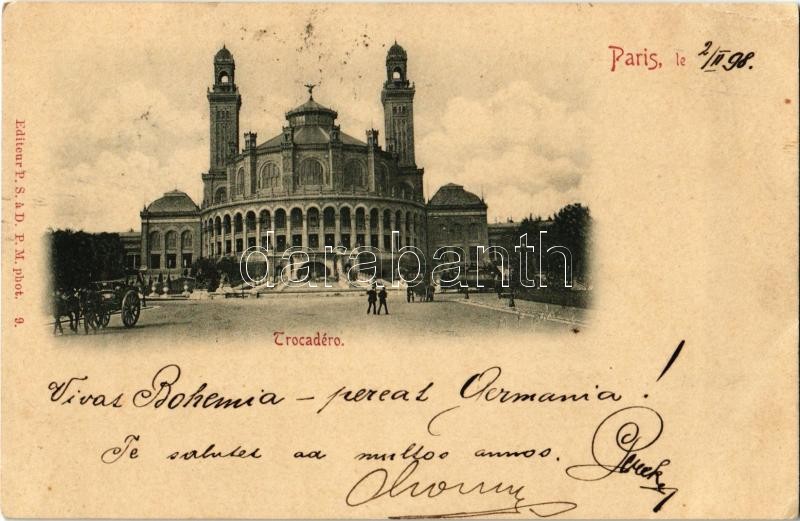 Paris, le 2/II 98.
Editeur P. S. à D. P. M. phot. 9.
darabanth
Trocadéro.
Vivat Bohemia – pereat Germania!
Te salutet ad multos annos.